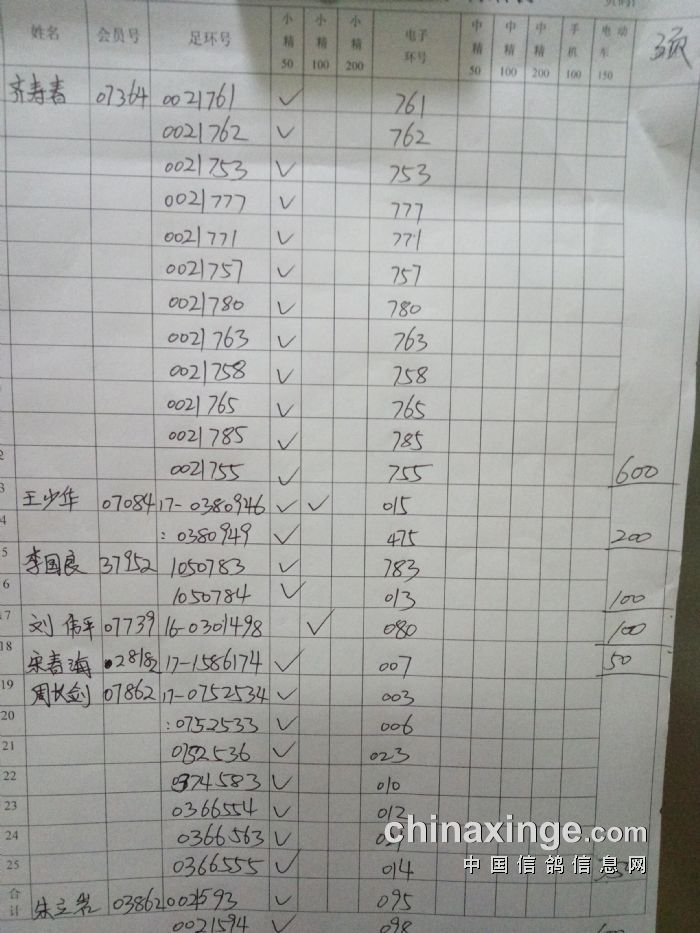 姓名 会员号 足环号 小精50 小精100 小精200 电子环号 中精50 中精100 中精200 手机100 电动车150
齐寿春 07364 0021761 ✓ 761
0021762 ✓ 762
0021753 ✓ 753
0021777 ✓ 777
0021771 ✓ 771
0021757 ✓ 757
0021780 ✓ 780
0021763 ✓ 763
0021758 ✓ 758
0021765 ✓ 765
0021785 ✓ 785
2 0021755 ✓ 755 600
3 王少华 07084 17-0380946 ✓ ✓ 015
4 : 0380949 ✓ 475 200
5 李国良 37952 1050783 ✓ 783
6 1050784 ✓ 013 100
17 刘伟平 07739 16-0301498 ✓ 080 100
18 宋春海 28182 17-1586174 ✓ 007 50
19 周长剑 07862 17-0752534 ✓ 003
20 :0752533 ✓ 006
21 0752536 ✓ 023
22 0374583 ✓ 010
23 0366554 ✓ 012
24 0366563 ✓
25 0366555 ✓ 014
合计 朱立岩 03862 0021593 ✓ 095
0021594 ✓ 098
chinaxinge.com
中国信鸽信息网